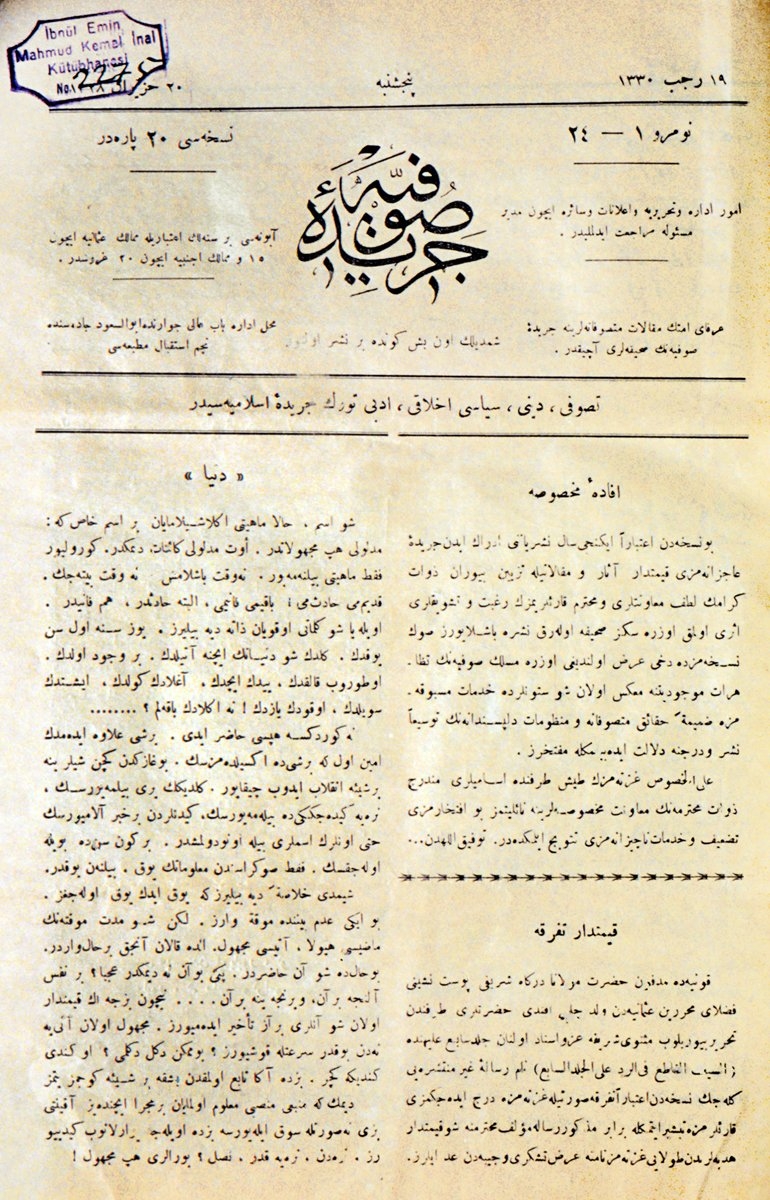 İbnül Emin
Mahmud Kemal İnal
Kütübhanesi
No.
227
١٩ رجب ١٣٣٠
پنجشنبه
٢٠
نومرو ١ — ٢٤
نسخه‌سی ٢٠ پاره‌در
جریدهٔ صوفیه
امور اداره وتحریریه واعلانات وسائره ایچون مدیر
مسئوله مراجعت ایدلملیدر .
آبونه‌سی بر سنه‌لك اعتباریله ممالك عثمانیه ایچون
١٥ و ممالك اجنبیه ایچون ٢٠ غروشدر .
عرفای امتك مقالات متصوفانه‌لرینه جریدهٔ
صوفیه‌نك صحیفه‌لری آچیقدر .
شمدیلك اون بش كونده بر نشر اولنور
محل اداره باب عالی جوارنده ابوالسعود جاده‌سنده
نجم استقبال مطبعه‌سی
تصوفی ، دینی ، سیاسی اخلاقی ، ادبی تورك جریدهٔ اسلامیه‌سیدر
افادهٔ مخصوصه
بونسخه‌دن اعتباراً ایكنجی سال نشریاتی ادراك ایدن جریدهٔ
عاجزانه‌مزی قیمتدار آثار و مقالاتیله تزیین بیوران ذوات
كرامك لطف معاونتلری ومحترم قارئلریمزك رغبت و تشویقلری
اثری اولمق اوزره سكز صحیفه اوله‌رق نشره باشلایورز صوك
نسخه‌مزده دخی عرض اولندیغی اوزره مسلك صوفیه‌نك تظا-
هرات موجودیتنه معكس اولان شو ستونلرده خدمات مسبوقه-
مزه ضمیمةً حقائق متصوفانه و منظومات دلپسندانه‌نك توسیعاً
نشر ودرجنه دلالت ایده‌بیلمكله مفتخرز .
علی‌الخصوص غزته‌مزك طیش طرفنده اسامیلری مندرج
ذوات محترمه‌نك معاونت مخصوصه‌لرینه نائلیتمز بو افتخارمزی
تضعیف و خدمات ناچیزانه‌مزی تتویج ایتمكده‌در. توفیق اللهدن...
قیمتدار تفرقه
قونیه‌ده مدفون حضرت مولانا دركاه شریفی پوست نشینی
فضلای محررین عثمانیه‌دن ولد چلبی افندی حضرتلری طرفندن
تحریر بیوریلوب مثنویٔ شریفه عزو اسناد اولنان جلد سابع علیهنده
(السیف القاطع فی الرد علی الجلد السابع) نام رسالهٔ غیر منتشره‌یی
كله‌جك نسخه‌دن اعتباراً تفرقه صورتیله غزته‌مزه درج ایده‌جكمزی
قارئلرمزه تبشیر ایتمكله برابر مذكور رساله مؤلف محترمنه شو قیمتدار
هدیه‌لرندن طولایی غزته‌مز نامنه عرض تشكری وجیبه‌دن عد ایلرز.
« دنیا »
شو اسم ، حالا ماهیتی اكلاشیلامایان بر اسم خاص كه :
مدلولی هپ مجهولاتدر . أوت مدلولی كائنات دیمكدر. كورولیور
فقط ماهیتی بیلنه‌میور . نه‌وقت باشلامش نه وقت بیته‌جك .
قدیم‌می حادث‌می ؛ باقی‌می فانی‌می ، البته حادثدر ، هم فانیدر .
اویله‌یا شو كلماتی اوقویان ذاته دیه بیلیرز . یوز سنه اول سن
یوقدك . كلدك شو دنیانك ایچنه آتیلدك . بر وجود اولدك .
اوطوروب قالقدك ، ییدك ایچدك . آغلادك كولدك ، ایشتدك
سویلدك ، اوقودك یازدك ! نه اكلادك باقه‌لم ؟ ........
نه كوردكسه هپسی حاضر ایدی . برشی علاوه ایده‌مدك
امین اول كه برشی‌ده اكسیلده‌مزسك . بوغازكدن كچن شیلر ینه
برشیئه انقلاب ایدوب چیقایور . كلدیكك یری بیلمه‌یورسـك ،
نره‌یه كیده‌جككی‌ده بیله‌مه‌یورسك، كیدنلردن برخبر آلامیورسك
حتی اونلرك اسملری بیله اونودولمشدر . بر كون سن‌ده بویله
اوله‌جقسك . فقط صوكراسندن معلوماتك یوق . بیلنه‌ن یوقدر.
شیمدی خلاصةً دیه بیلیرز كه یوق ایدك یوق اوله‌جغز .
بو ایكی عدم بیننده موقةً وارز . لكن شو مدت موقته‌نك
ماضیسی هیولا ، آتیسی مجهول. الده قالان آنجق برحال واردر.
بوحال‌ده شو آن حاضردر. پكی بو آن نه دیمكدر عجبا؟ بر نفس
آلنجه بر آن، ویرنجه ینه بر آن .... نیچون بزجه اك قیمتدار
اولان شو آنلری براز تأخیر ایده‌میورز . مجهول اولان آتی‌یه
نه‌دن بوقدر سرعتله قوشیورز ؟ بوممكن دكل دكلمی ؟ او كندی
كندیكه كچر . بزده آكا تابع اولمقدن بشقه بر شیئه كوجمز یتمز
دیمك كه منبعی منصبی معلوم اولمایان برمجرا ایچنده‌یز آقینتی
بزی نه‌صورتله سوق ایله‌یورسه بزده اویله‌جه یوارلانوب كیدییو
رز . نره‌دن ، نره‌یه قدر ، نصل ؟ بورالری هپ مجهول !